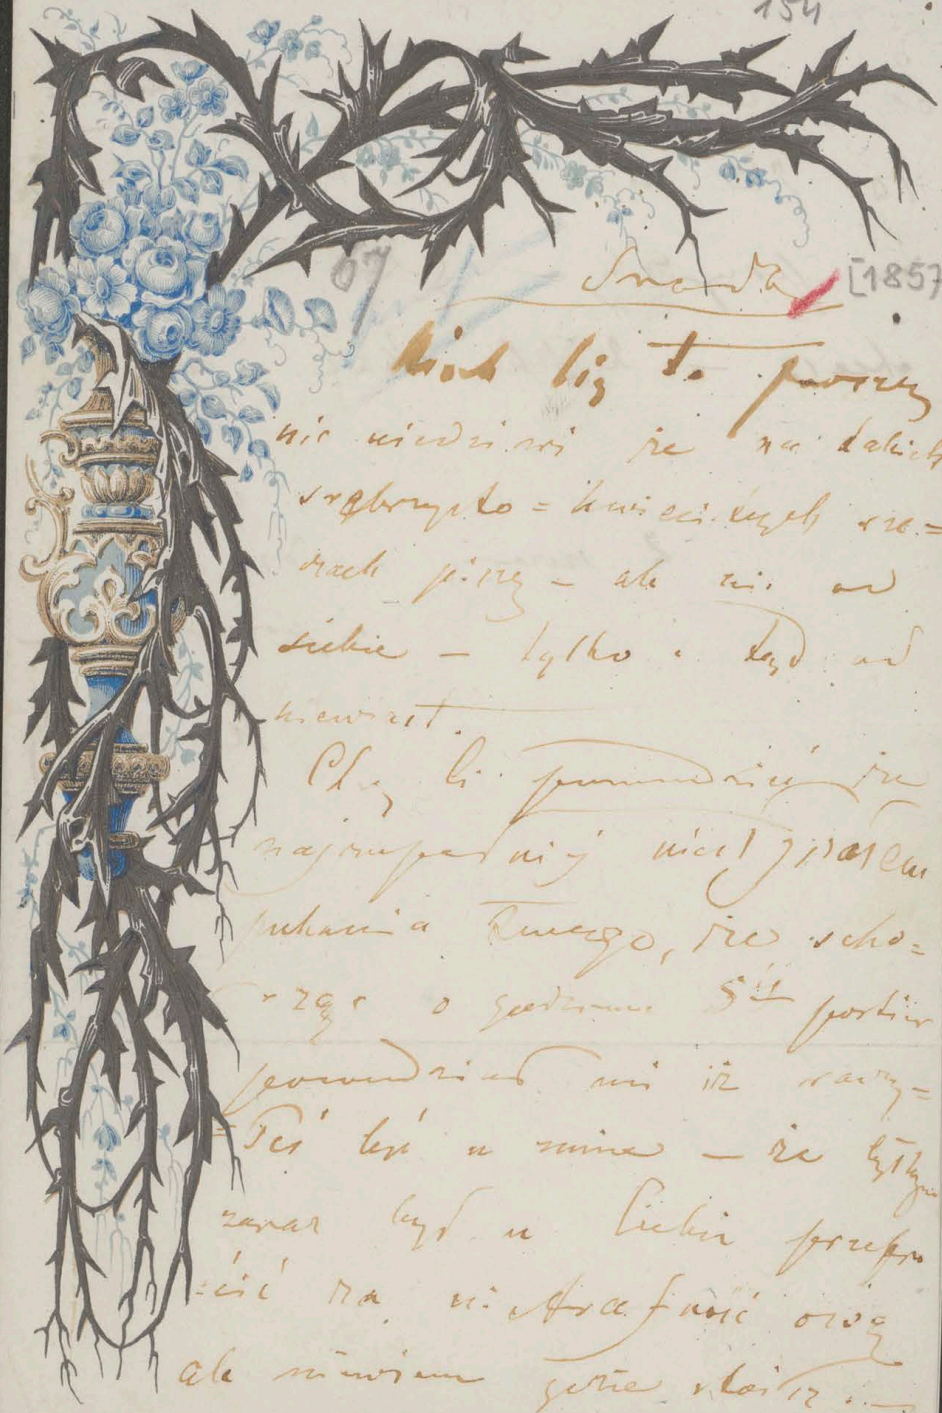 154
07
Środa
[1857
Niech Cię to proszę
nie niedziwi że na takich
srebrzysto = kwiecistych rze=
czach piszę — ale nie od
siebie — tylko i tyś od
niewiast.
Chcę Ci powiedzieć że
najzupełniej nie słyszałem
pukania Twego, że scho=
dząc o godzinie 5ej portier
powiedział mi iż raczy=
=łeś być u mnie — że byłbym
zaraz był u Ciebie przepro
=sić za nietrafność ową
ale niewiem gdzie stoisz. —